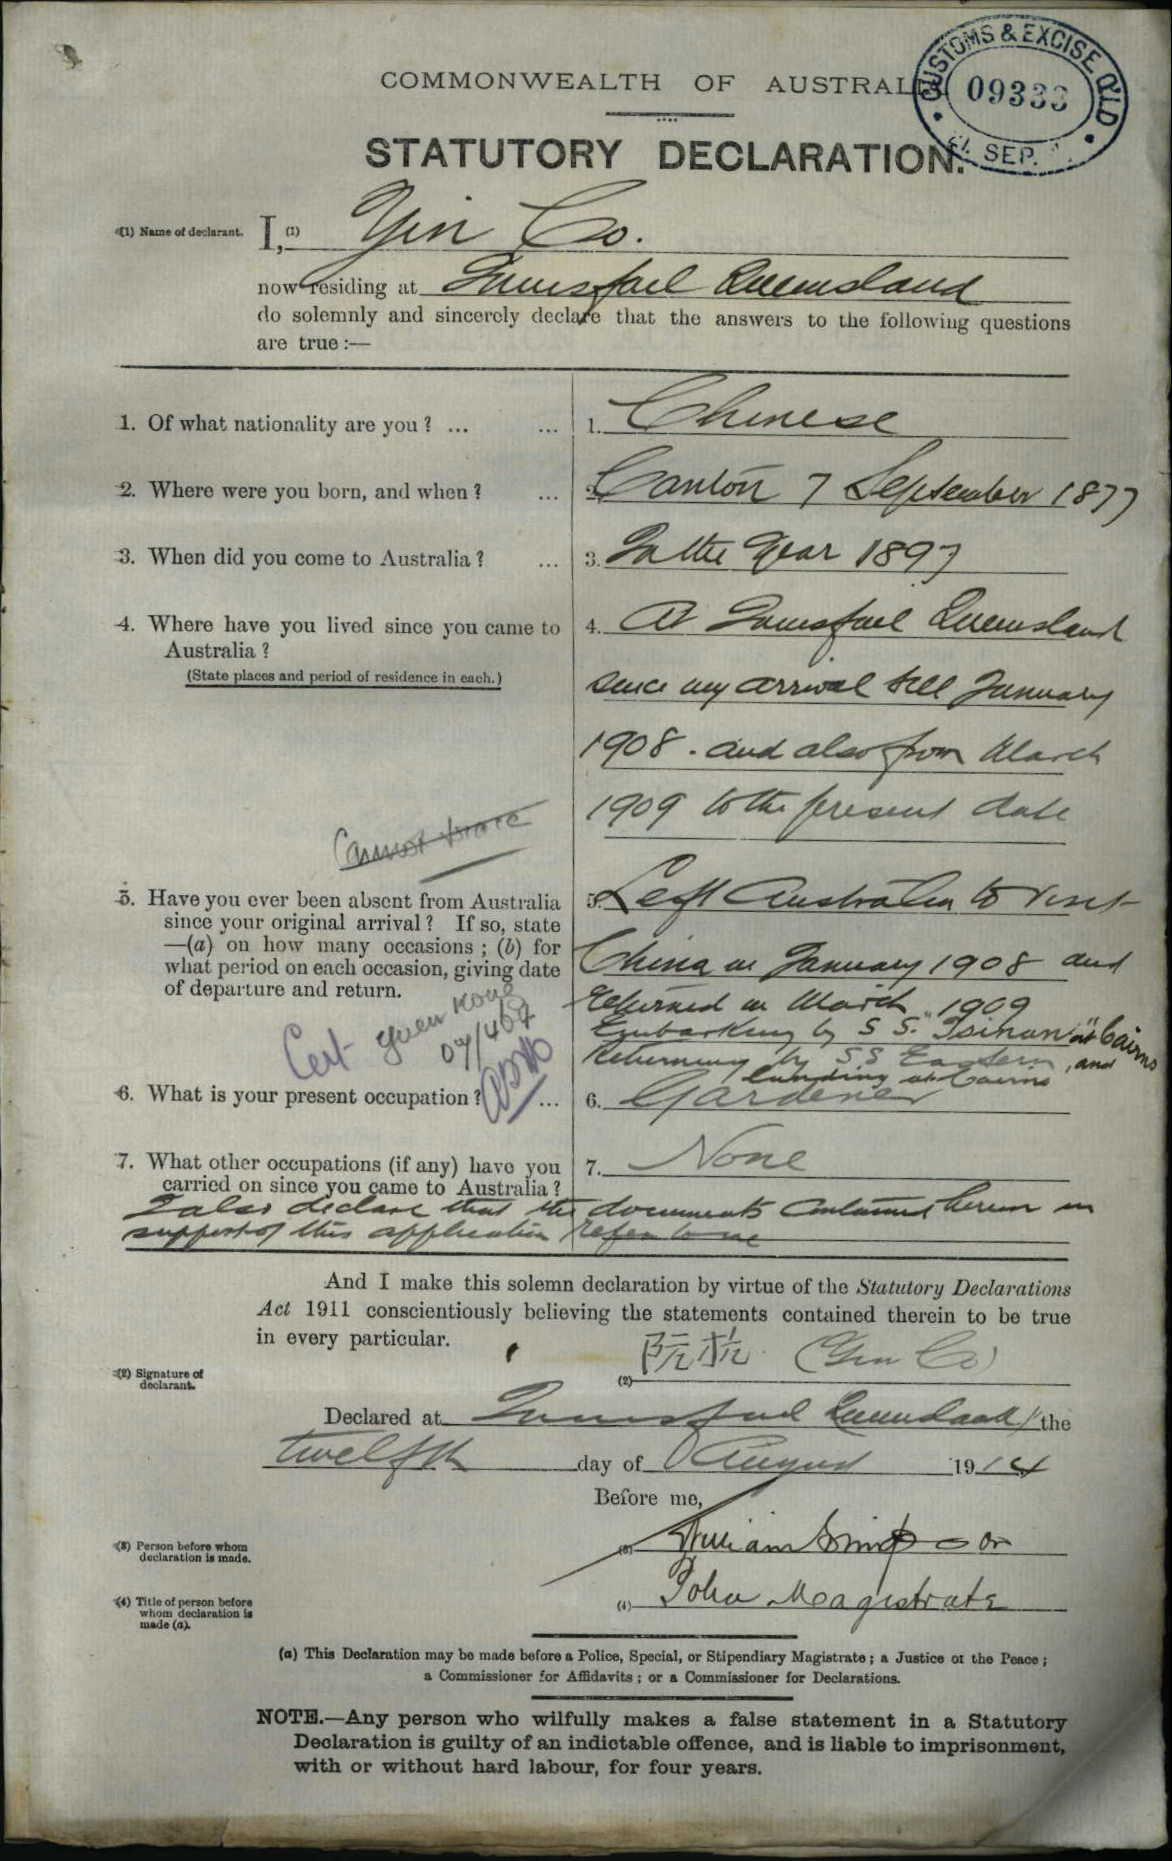 COMMONWEALTH OF AUSTRAL
CUSTOMS & EXCISE QLD
09333
SEP.
STATUTORY DECLARATION.
(1) Name of declarant. I, (1) Yin Co.
now residing at Innisfail Queensland
do solemnly and sincerely declare that the answers to the following questions
are true :—
1. Of what nationality are you ? ... ... 1. Chinese
2. Where were you born, and when ? ... 2. Canton 7 September 1877
3. When did you come to Australia ? ... 3. In the Year 1897
4. Where have you lived since you came to 4. At Innisfail Queensland
Australia ?
(State places and period of residence in each.)
since my arrival till January
1908. and also from March
1909 to the present date
Cannot trace
5. Have you ever been absent from Australia 5. Left Australia to visit
since your original arrival ? If so, state
—(a) on how many occasions ; (b) for China in January 1908 and
what period on each occasion, giving date
of departure and return. returned in March 1909
Embarking by S S. "Tsinan" at Cairns
Returning by S S Eastern, and
landing at Cairns
Cert given
07/467
6. What is your present occupation ? ... 6. Gardener
7. What other occupations (if any) have you 7. None
carried on since you came to Australia ?
I also declare that the documents contained herein in
support of this application refer to me
And I make this solemn declaration by virtue of the Statutory Declarations
Act 1911 conscientiously believing the statements contained therein to be true
in every particular.
(2) Signature of
declarant. (2) 阮杭 (Yin Co)
Declared at Innisfail Queensland the
twelfth day of August 1914
Before me,
(3) Person before whom
declaration is made. (3) William Simpson
(4) Title of person before
whom declaration is
made (a). (4) Police Magistrate
(a) This Declaration may be made before a Police, Special, or Stipendiary Magistrate ; a Justice of the Peace ;
a Commissioner for Affidavits ; or a Commissioner for Declarations.
NOTE.—Any person who wilfully makes a false statement in a Statutory
Declaration is guilty of an indictable offence, and is liable to imprisonment,
with or without hard labour, for four years.